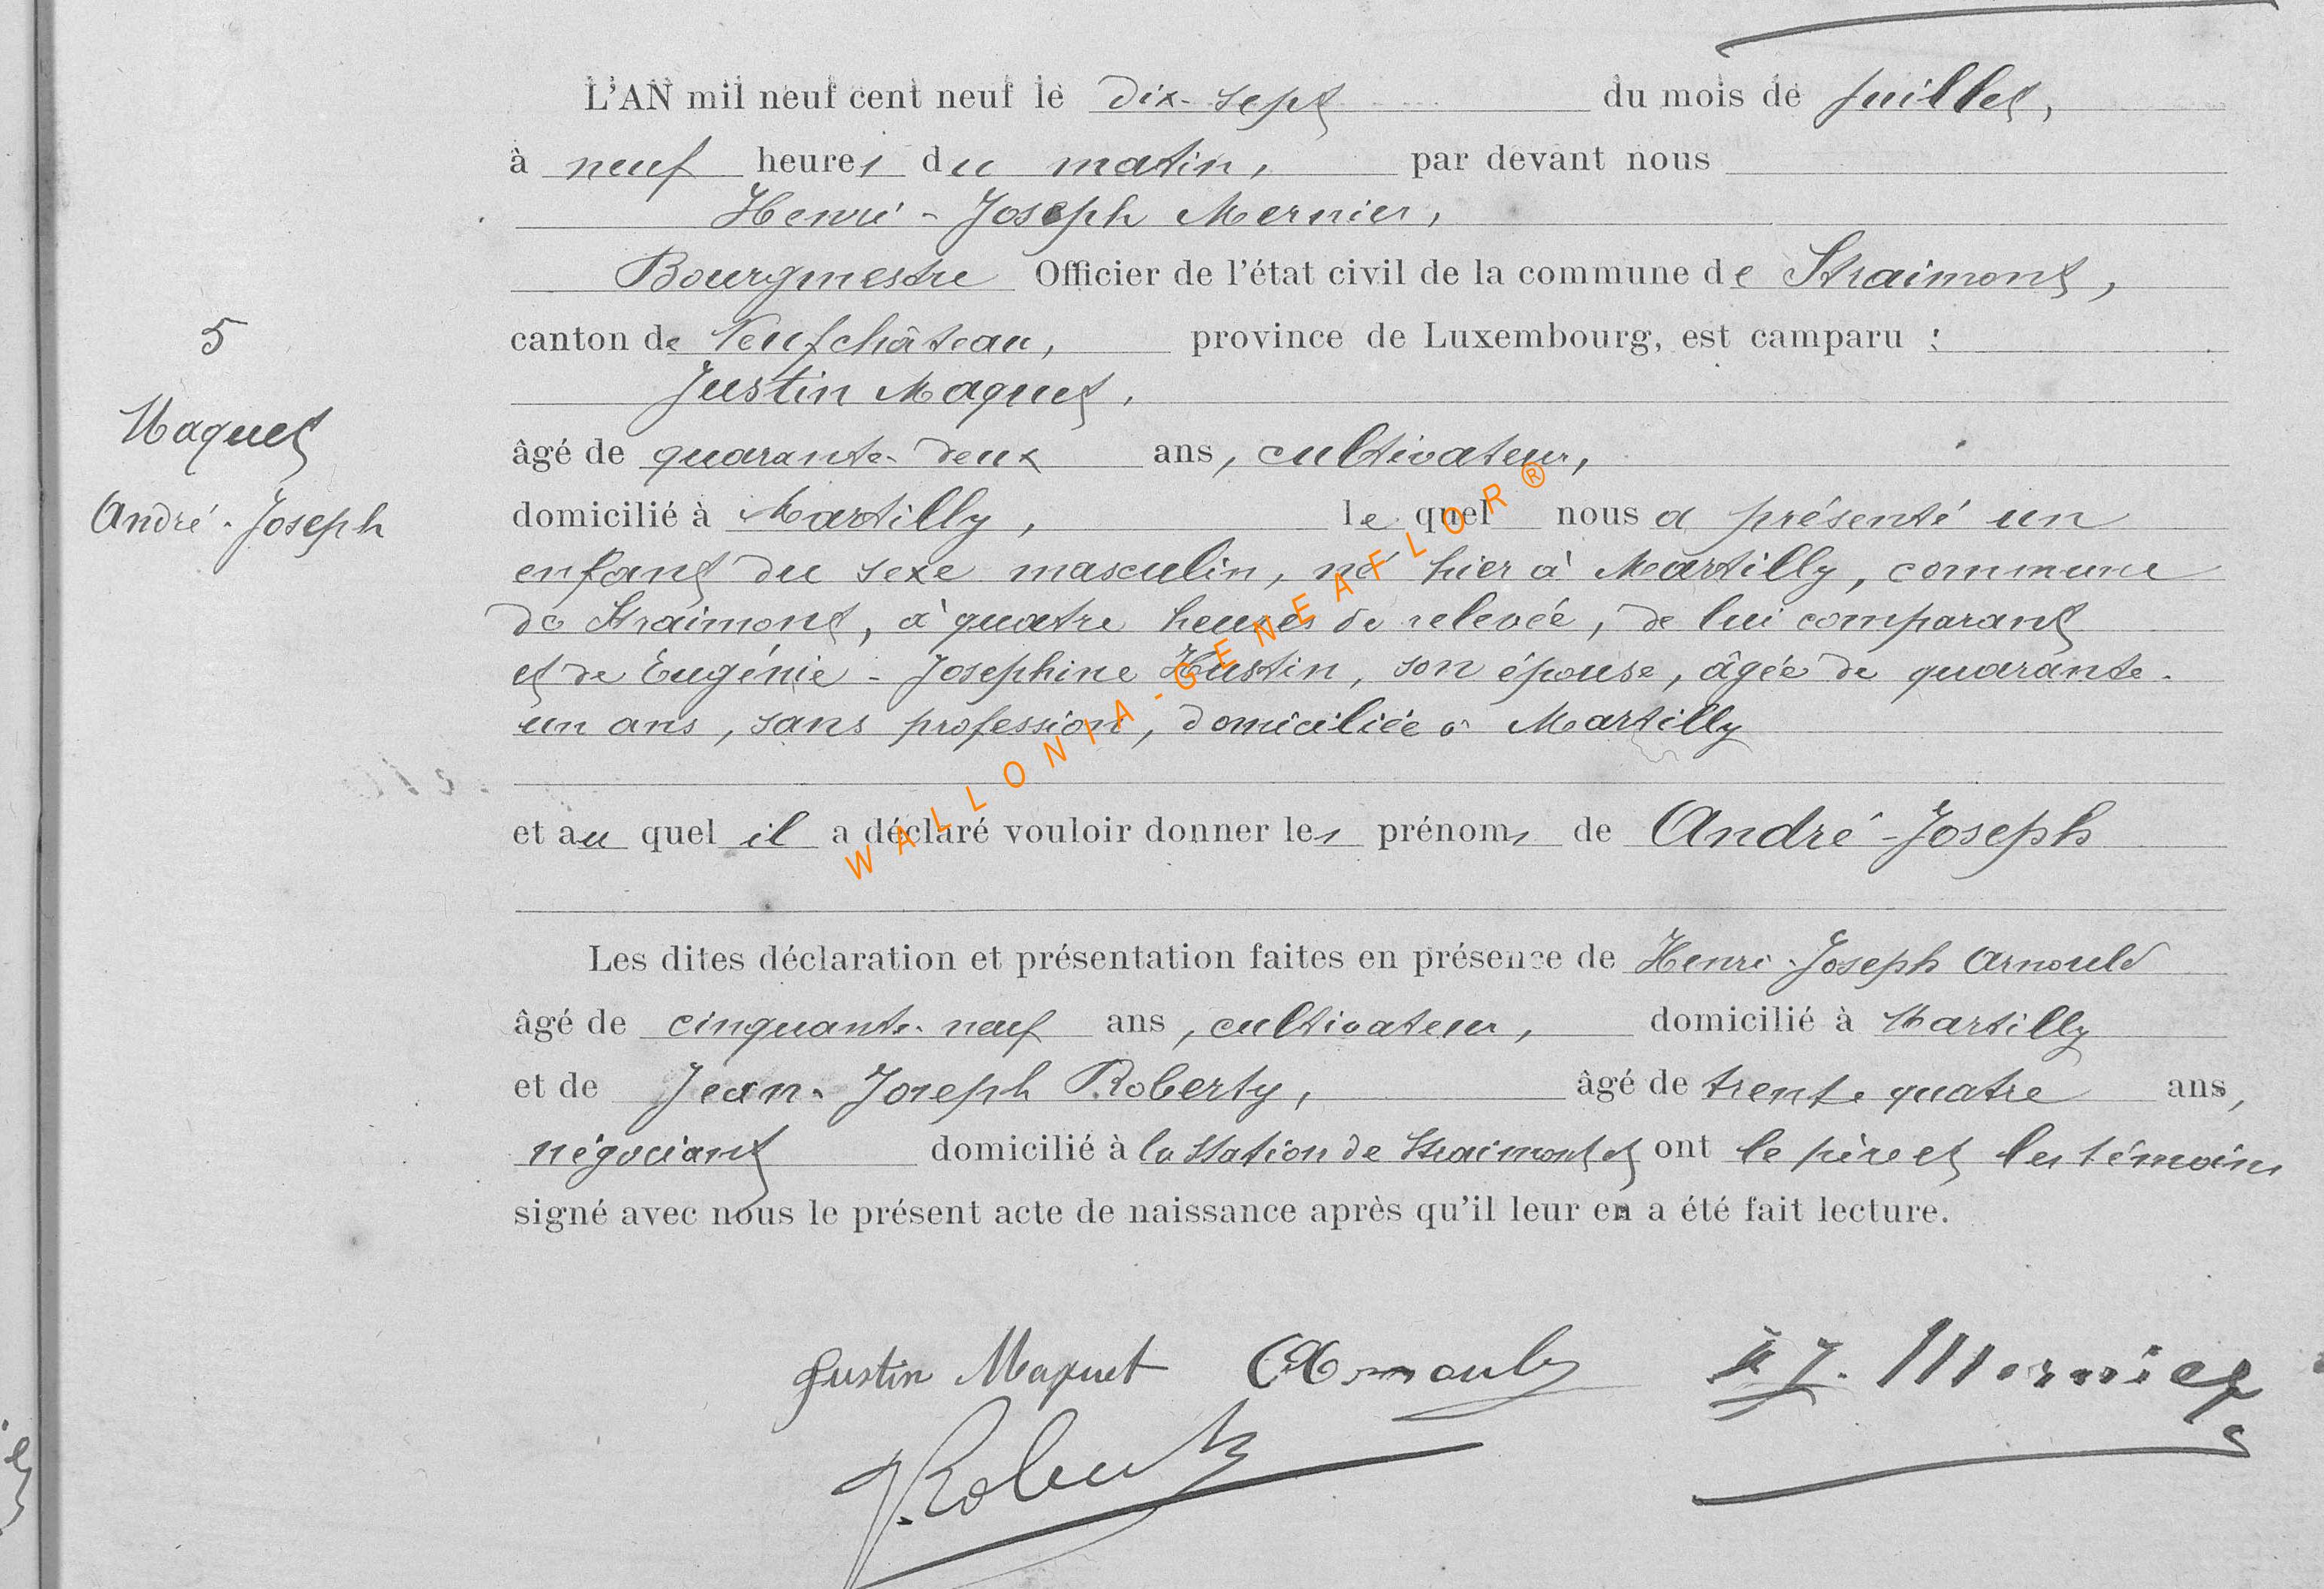 L'AN mil neuf cent neuf le dix-sept du mois de Juillet,
à neuf heures du matin, par devant nous
Henri-Joseph Mernier,
Bourgmestre Officier de l'état civil de la commune de Straimont,
5
canton de Neufchâteau, province de Luxembourg, est camparu :
Justin Maquet,
Maquet
âgé de quarante-deux ans, cultivateur,
André-Joseph
domicilié à Martilly, le quel nous a présenté un
enfant du sexe masculin, né hier à Martilly, commune
de Straimont, à quatre heures de relevée, de lui comparant
et de Eugénie-Josephine Hustin, son épouse, âgée de quarante-
un ans, sans profession, domiciliée à Martilly
et au quel il a déclaré vouloir donner les prénoms de André-Joseph
Les dites déclaration et présentation faites en présence de Henri-Joseph Arnould
âgé de cinquante-neuf ans, cultivateur, domicilié à Martilly
et de Jean-Joseph Roberty, âgé de trente quatre ans,
négociant domicilié à la Station de Straimont et ont le père et les témoins
signé avec nous le présent acte de naissance après qu'il leur en a été fait lecture.
Justin Maquet Arnould H J. Mernier
J. Roberty
WALLONIA-GENEAFLOR®